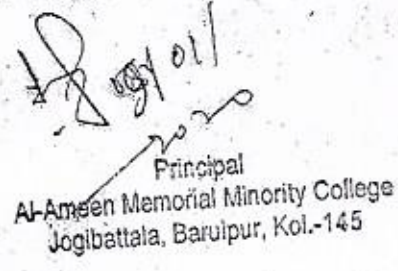 2020
Principal
Al-Ameen Memorial Minority College
Jogibattala, Baruipur, Kol.-145